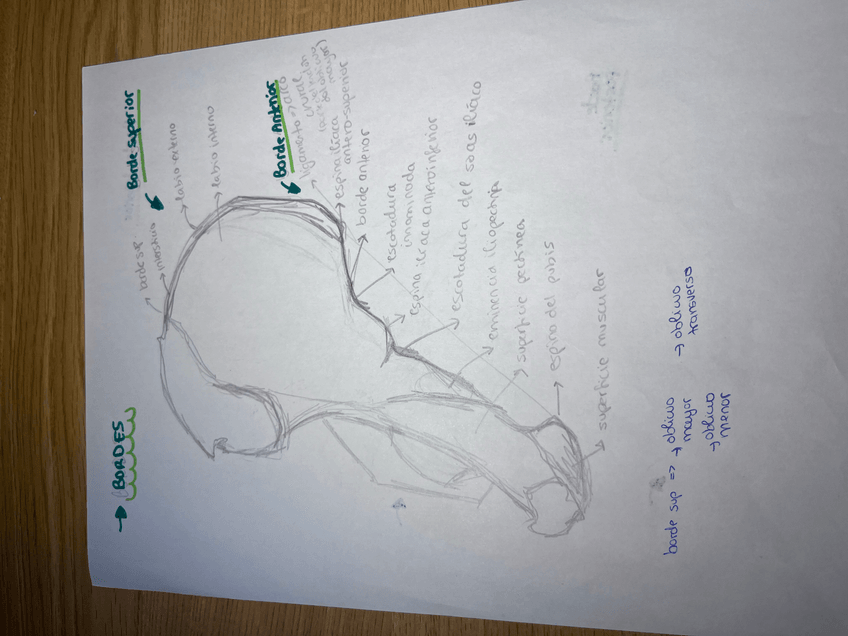 → BORDES
Borde superior
borde sup.
intersticio
labio externo
labio interno
Borde Anterior
ligamento → arco
crural
mayor)
espina iliaca
antero-superior
borde anterior
escotadura
innominada
espina iliaca anteroinferior
escotadura del soas ilíaco
eminencia iliopectinja
superficie pectinea
espina del pubis
superficie muscular
borde sup => → oblicuo
mayor
→ oblicuo
menor
→ oblicuo
transverso